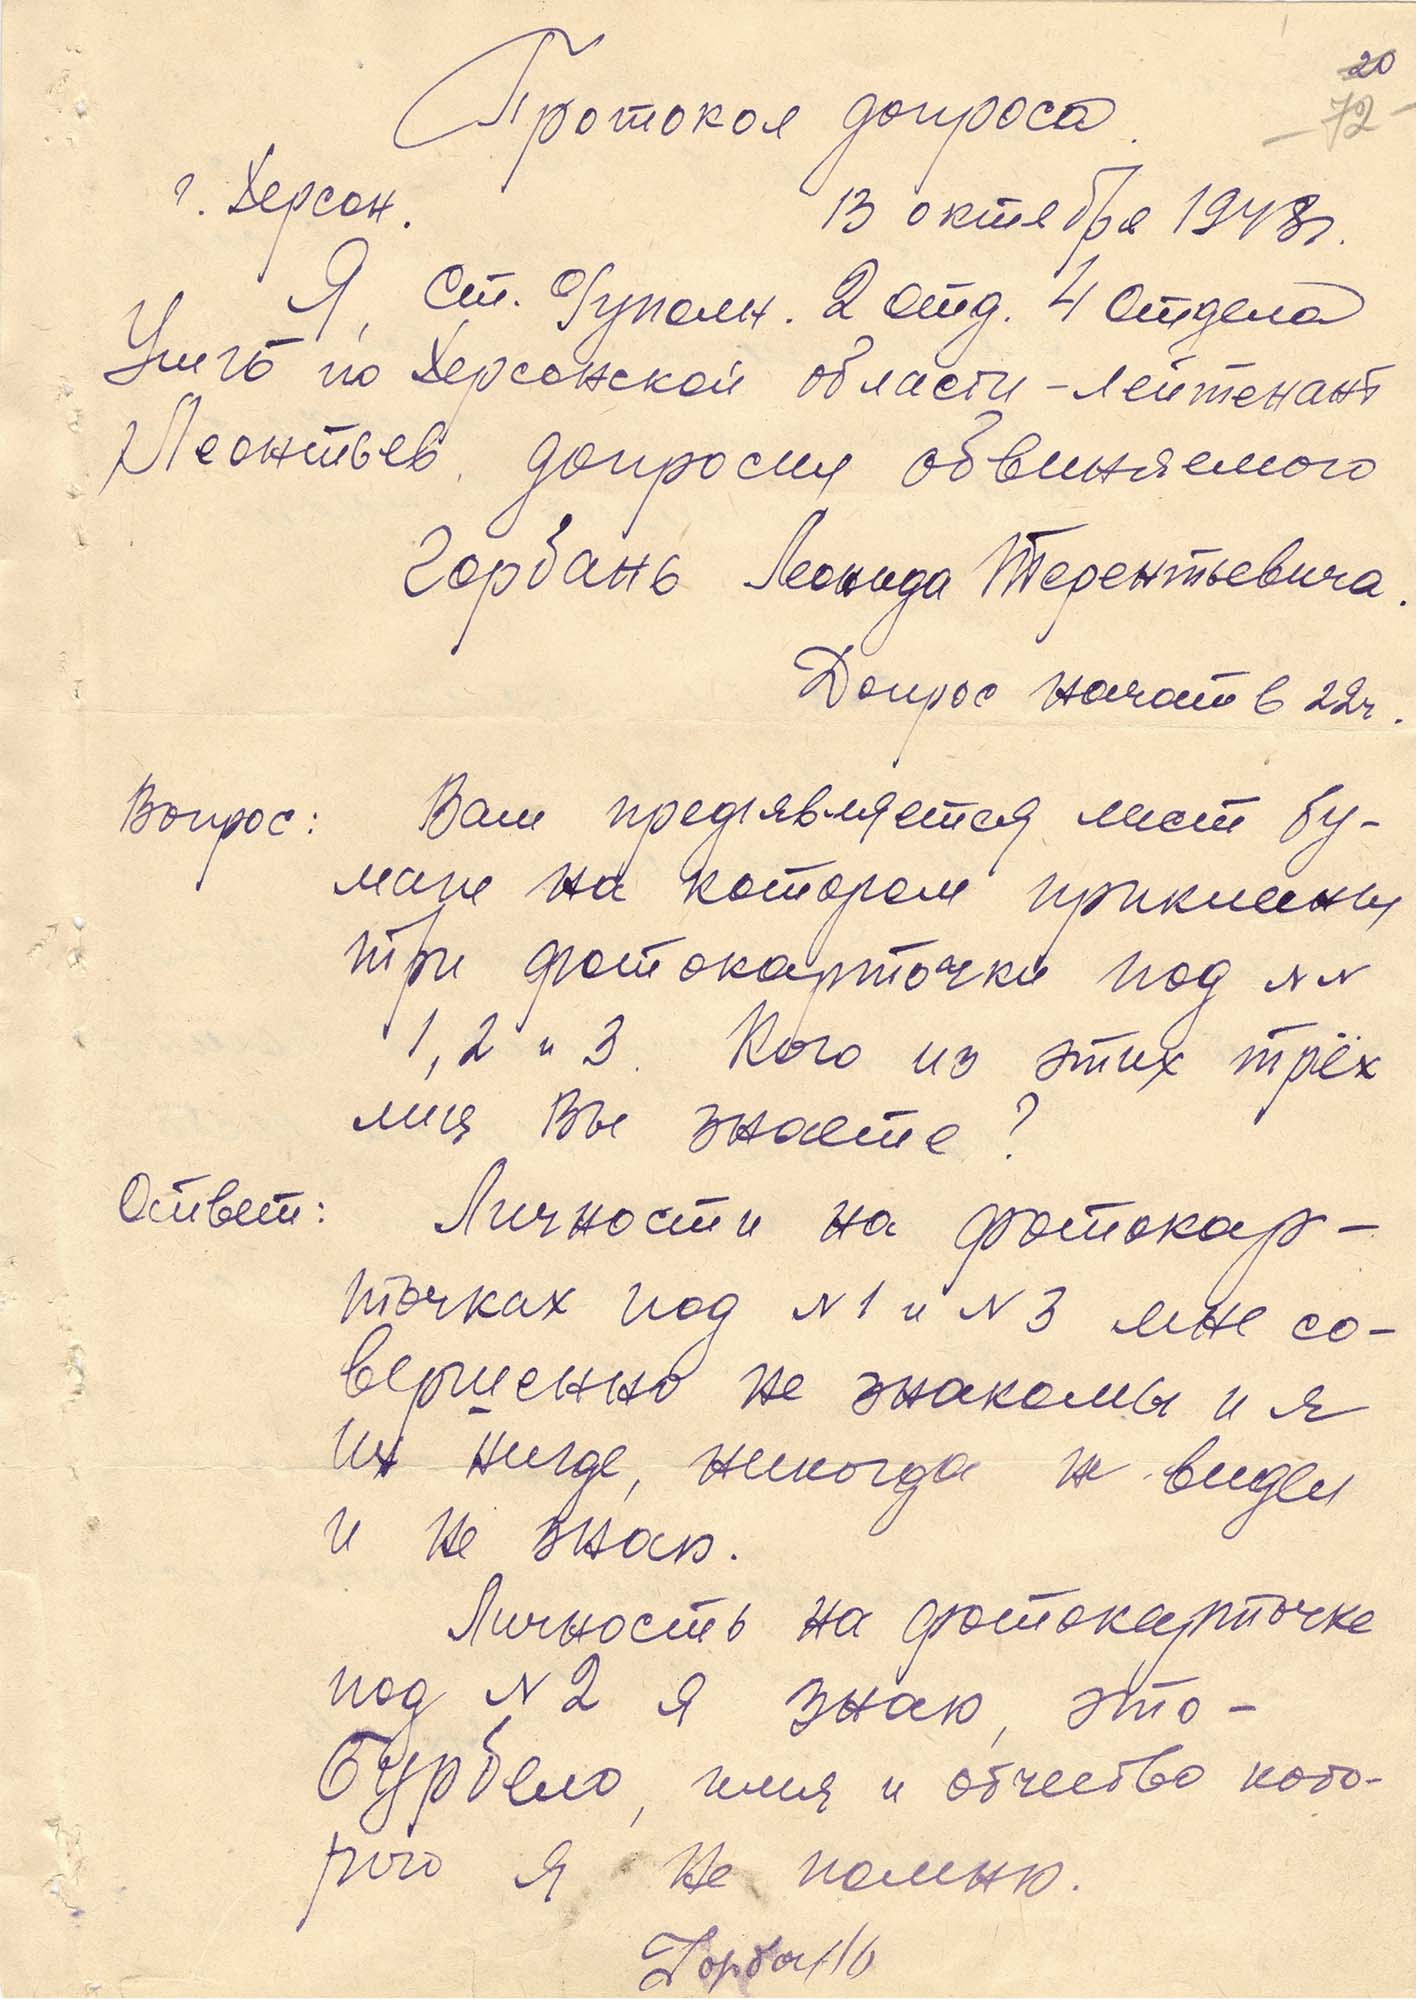 20
72
Протокол допроса.
г. Херсон. 13 октября 1948г.
Я, Ст. Оуполн. 2 отд. 4 отдела
УМГБ по Херсонской области – лейтенант
Леонтьев, допросил обвиняемого
Горбань Леонида Терентьевича.
Допрос начат в 22ч.
Вопрос: Вам предъявляется лист бу-
маги на котором приклеены
три фотокарточки под N N
1, 2 и 3. Кого из этих трёх
лиц Вы знаете?
Ответ: Личности на фотокар-
точках под N 1 и N 3 мне со-
вершенно не знакомы и я
их нигде, никогда не видел
и не знаю.
Личность на фотокарточке
под N 2 я знаю, это –
Бурбело, имя и отчество кото-
рого я не помню.
Горбань